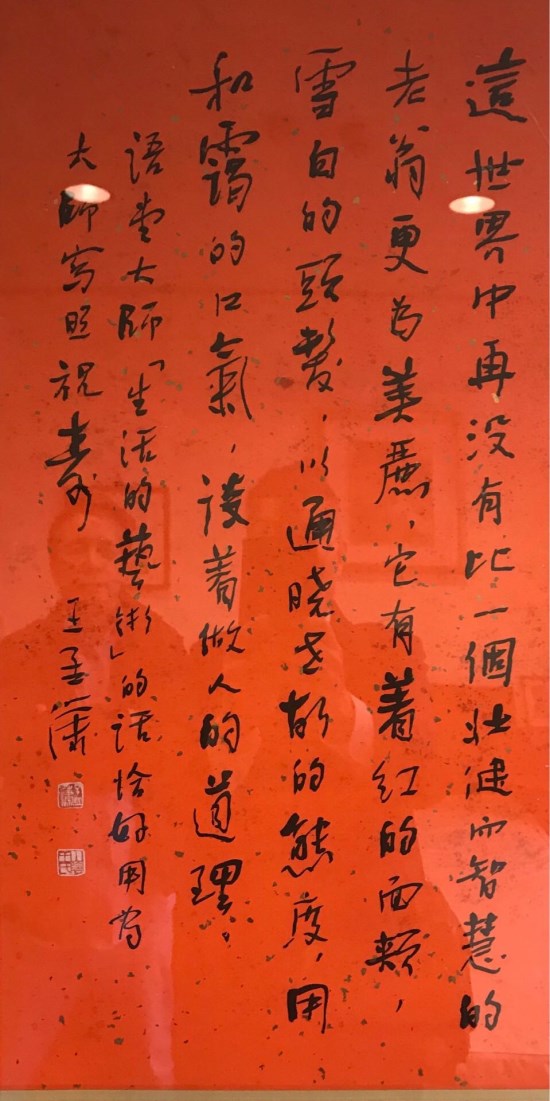 這世界中再没有比一個壯健而智慧的
老翁更为美麗，它有着红的面頰，
雪白的頭髮，以通曉世故的態度，用
和靄的口氣，談着做人的道理。
語堂大師「生活的藝術」的話恰好用为
大師寫照祝壽